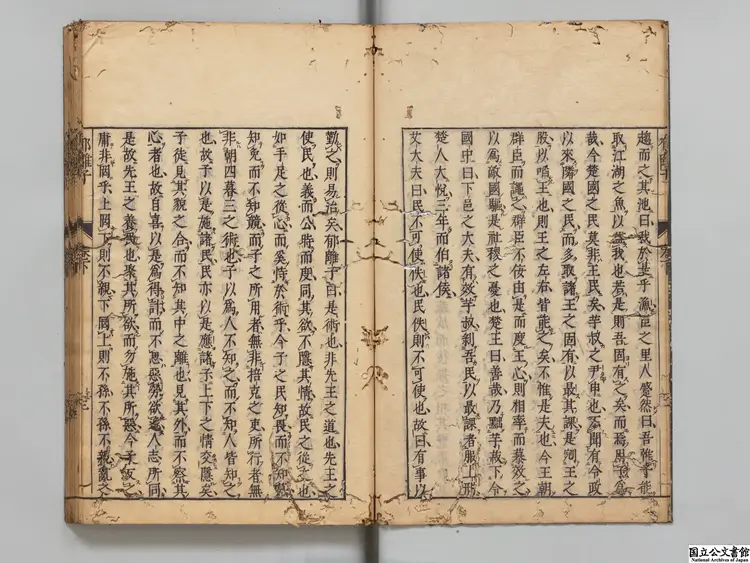 趨而之其池曰我於是乎漁臣之里人蹙然曰吾雖不能
取江湖之魚以益我也若是則吾固有之矣而焉用子爲
哉今楚國之民莫非王民矣芋叔之尹申也不聞有令政
以來隣國之民而多取諸王之固有以最其課是刓王之
股以啗王也則王之左右皆能之矣不惟是夫也今王朝
群臣而謳之群臣不佞由是而度王心則相率而慕效之
以爲敵國驅是社稷之憂也楚王曰善哉乃黜芋叔下令
國中曰下邑之大夫有效芋叔剥吾民以最課者服上刑
楚人大悅三年而伯諸侯
艾大夫曰民不可使佚也民佚則不可使也故曰有事以
勤之則易治矣郁離子曰是術也非先王之道也先王之
使民也義而公時而度同其欲不隱其情故民之從之也
如手足之從心而奚恃於術乎今子之民知畏而不知慕
知免而不知競而子之所用者無非掊克之吏所行者無
非朝四暮三之術也子以爲人不知之而不知人皆知之
也故子以是施諸民民亦以是應諸子上下之情交隱矣
子徒見其貌之合而不知其中之離也見其外而不察其
心者也故自喜以是爲得計而不思惡勞欲逸人志所同
是故先王之養民也聚其所欲而勿施其所惡今子反之
庸非罔乎上罔下則不親下罔上則不孫不孫不親亂之
郁離子
国立公文書館
National Archives of Japan